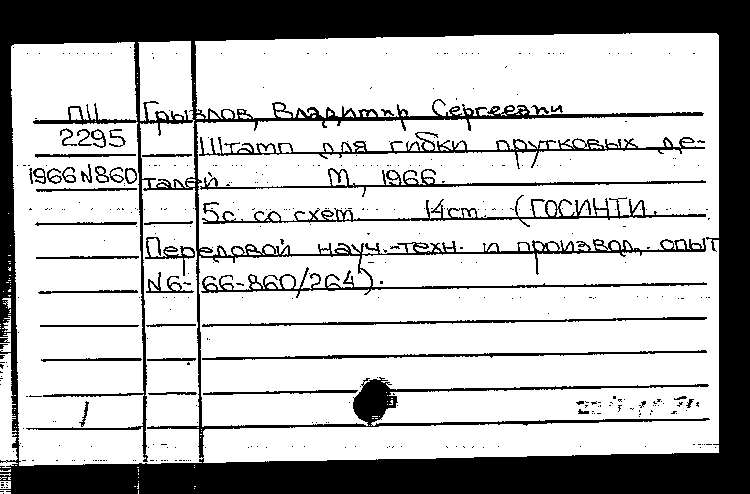 ПН Грызлов, Владимир Сергеевич
2295 Штамп для гибки прутковых де-
1966 N860 талей. М., 1966.
5с. со схем 14см (ГОСИНТИ.
Передовой науч.-техн. и производ. опыт
N6-66-860/264).
1